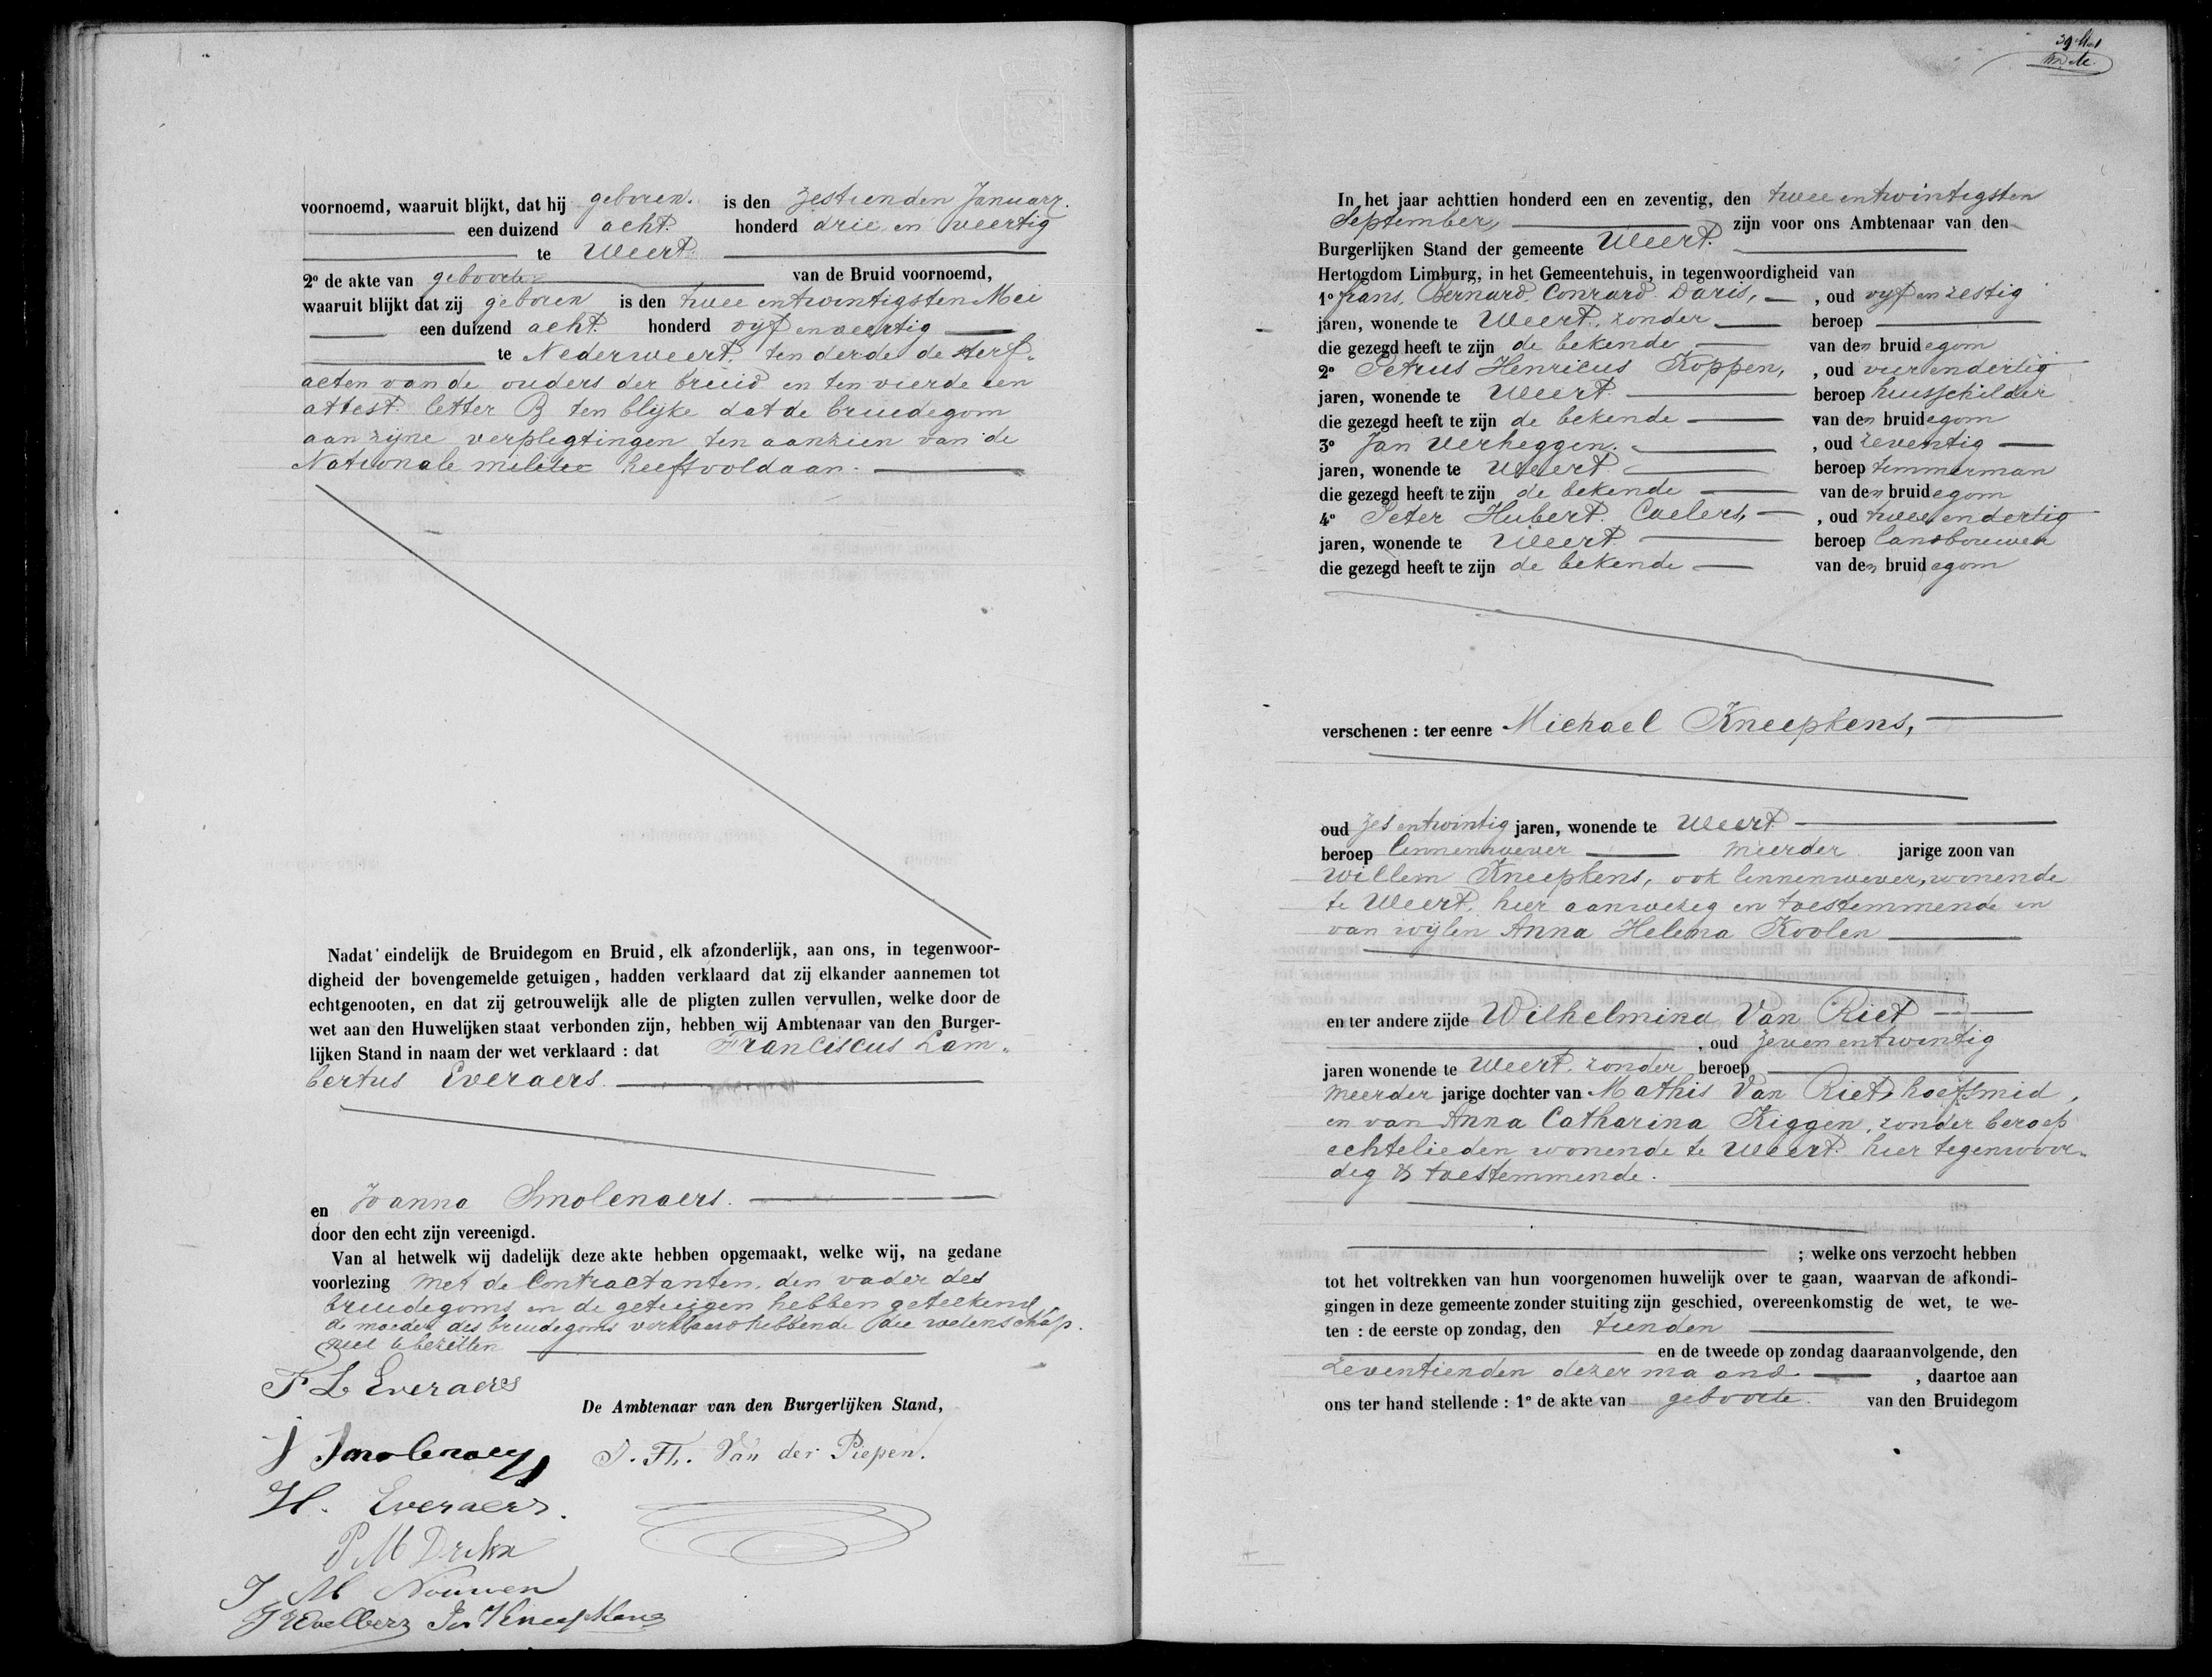 voornoemd, waaruit blijkt, dat hij geboren is den zestienden Januarij
een duizend acht honderd drie en veertig
te Weert
2º de akte van geboorte van de Bruid voornoemd,
waaruit blijkt dat zij geboren is den twee entwintigsten Mei
een duizend acht honderd vyf en veertig
te Nederweert ten derde de sterf-
acten van de ouders der bruid en ten vierde een
attest letter B ten blyke dat de bruidegom
aan zyne verplegtingen ten aanzien van de
Nationale militie heeft voldaan.
Nadat eindelijk de Bruidegom en Bruid, elk afzonderlijk, aan ons, in tegenwoor-
digheid der bovengemelde getuigen, hadden verklaard dat zij elkander aannemen tot
echtgenooten, en dat zij getrouwelijk alle de pligten zullen vervullen, welke door de
wet aan den Huwelijken staat verbonden zijn, hebben wij Ambtenaar van den Burger-
lijken Stand in naam der wet verklaard : dat Franciscus Lam-
bertus Everaers
en Joanna Smolenaers.
door den echt zijn vereenigd.
Van al hetwelk wij dadelijk deze akte hebben opgemaakt, welke wij, na gedane
voorlezing met de Contractanten, den vader des
bruidegoms en de getuigen hebben geteekend
de moeder des bruidegoms verklaard hebbende die wetenschap
niet te bezitten
F L Everaers
De Ambtenaar van den Burgerlijken Stand,
J Smolenaers
J. Fh. Van der Piepen.
H. Everaers.
P M
J. M Nouwen
Kneepkens
In het jaar achttien honderd een en zeventig, den twee entwintigsten
September, zijn voor ons Ambtenaar van den
Burgerlijken Stand der gemeente Weert.
Hertogdom Limburg, in het Gemeentehuis, in tegenwoordigheid van
1º Frans, Bernard, Conrard Daris, , oud vyf en zestig
jaren, wonende te Weert, zonder beroep
die gezegd heeft te zijn de bekende van den bruidegom
2º Petrus Henricus Koppen, , oud vier en dertig
jaren, wonende te Weert beroep huisschilder
die gezegd heeft te zijn de bekende van den bruidegom
3º Jan Verheggen. , oud zeventig
jaren, wonende te Weert beroep timmerman
die gezegd heeft te zijn de bekende van den bruidegom
4º Peter Hubert Caelers, , oud twee en dertig
jaren, wonende te Weert beroep landbouwer
die gezegd heeft te zijn de bekende van den bruidegom
verschenen : ter eenre Michael Kneepkens,
oud zes entwintig jaren, wonende te Weert
beroep linnenwever meerder jarige zoon van
Willem Kneepkens, ook linnenwever, wonende
te Weert, hier aanwezig en toestemmende en
van wylen Anna Helena Koolen
en ter andere zijde Wilhelmina Van Riet
, oud zeven entwintig
jaren wonende te Weert, zonder beroep
meerder jarige dochter van Mathis Van Riet, hoefsmid,
en van Anna Catharina Kiggen, zonder beroep
echtelieden wonende te Weert hier tegenwoor-
dig & toestemmende.
; welke ons verzocht hebben
tot het voltrekken van hun voorgenomen huwelijk over te gaan, waarvan de afkondi-
gingen in deze gemeente zonder stuiting zijn geschied, overeenkomstig de wet, te we-
ten : de eerste op zondag, den tienden
en de tweede op zondag daaraanvolgende, den
zeventienden dezer maand , daartoe aan
ons ter hand stellende : 1º de akte van geboorte van den Bruidegom